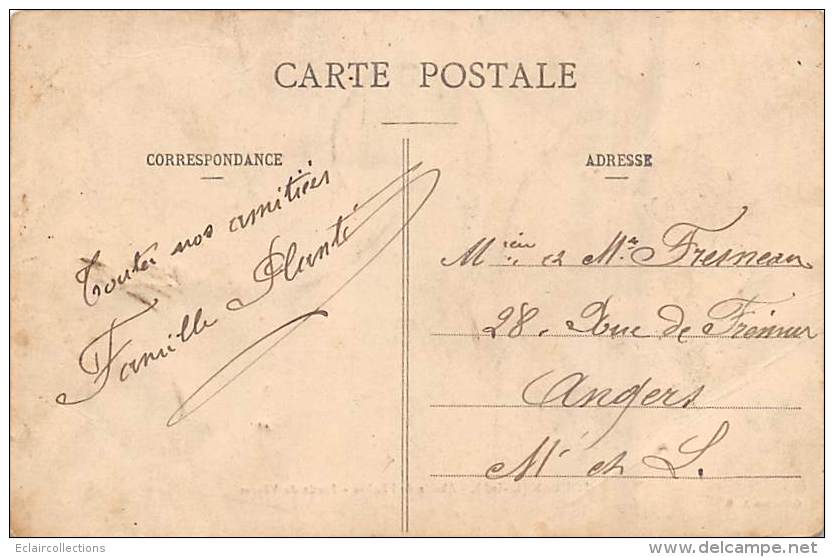 CARTE POSTALE
CORRESPONDANCE
Toutes nos amitiées
Famille Planté
ADRESSE
Mr et Me Fresneau
28. Rue de Frémur
Angers
M et L.
Eclaircollections
www.delcampe.net